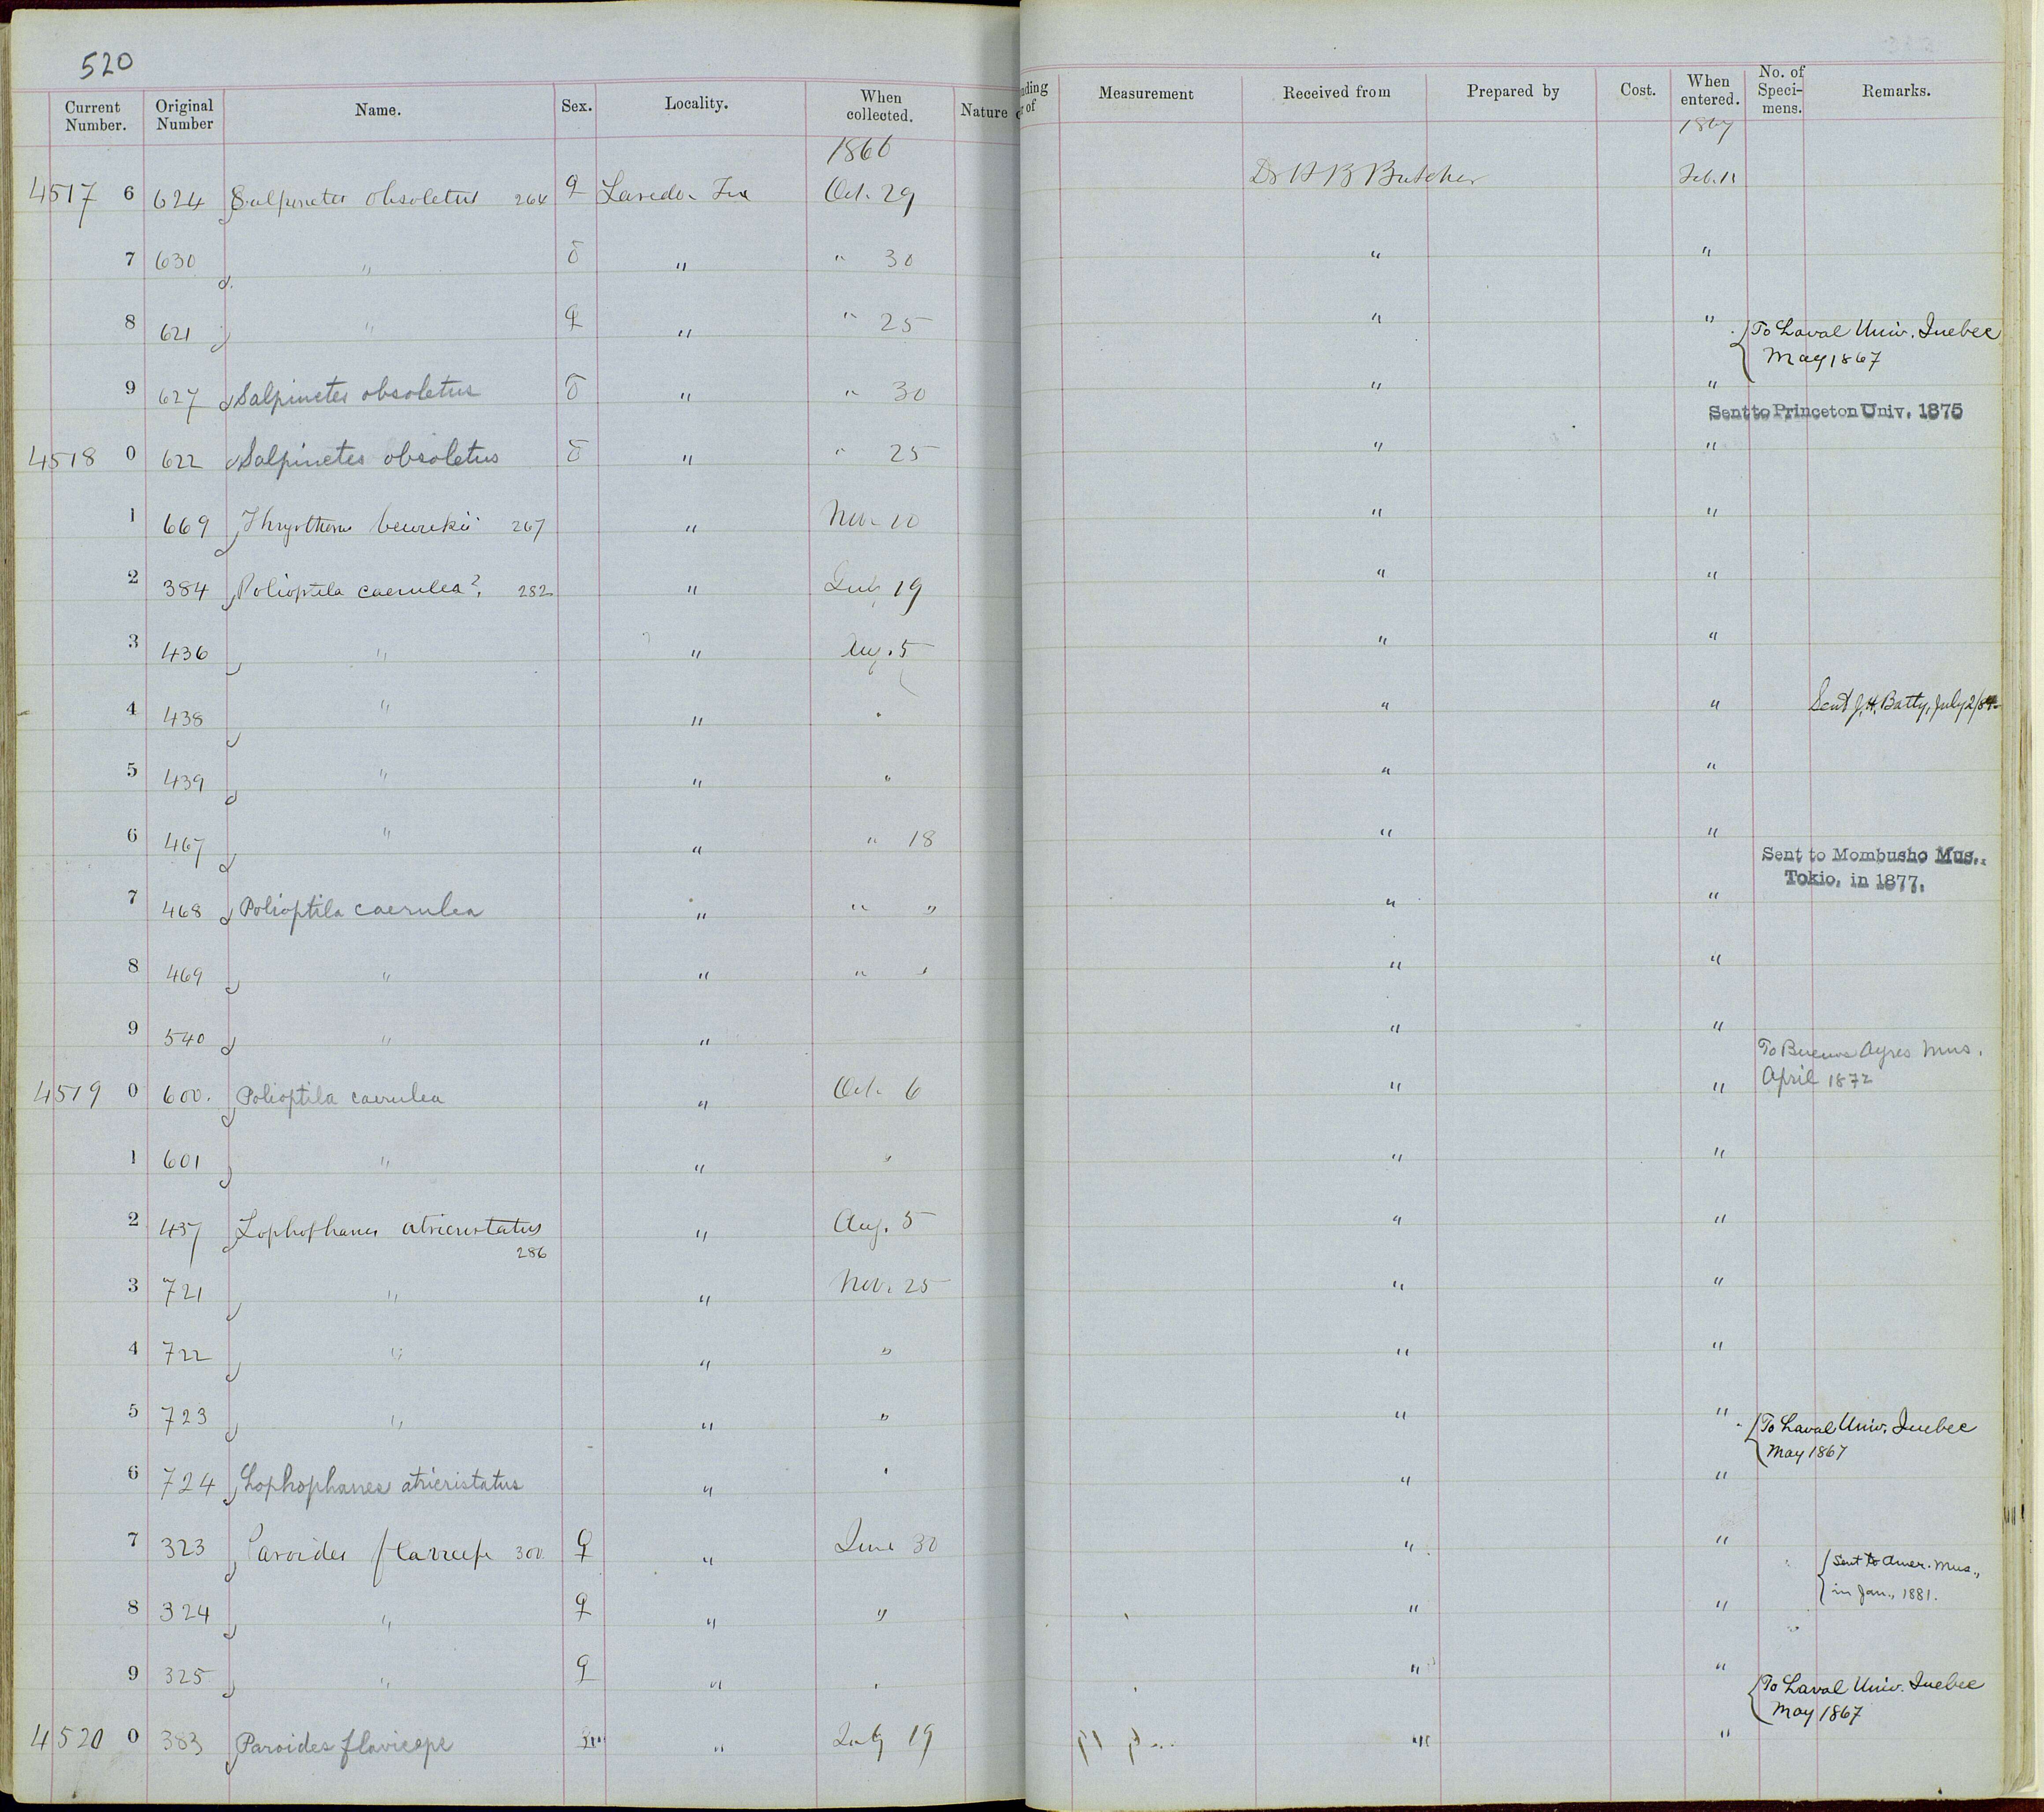 520
Current Number. Original Number Name. Sex. Locality. When collected. Nature nding of Measurement Received from Prepared by Cost. When entered. No. of Speci-mens. Remarks.
1866 1867
4517 6 624 Salpinctes obsoletus 264 ♀ Laredo Tex Oct. 29 Dr H B Butcher Feb. 11
7 630 " ♂ " " 30 " "
8 621 " ♀ " " 25 " " To Laval Univ. Quebec
May 1867
9 627 Salpinctes obsoletus ♂ " " 30 " "
Sent to Princeton Univ. 1875
4518 0 622 Salpinctes obsoletus ♂ " " 25 " "
1 669 Thryothorus bewickii 267 " Nov. 10 " "
2 384 Polioptila caerulea? 282 " July 19 " "
3 436 " " Aug. 5 " "
4 438 " " " " " Sent J. H. Batty, July 2/84
5 439 " " " " "
6 467 " " " 18 " "
Sent to Mombusho Mus.
Tokio, in 1877.
7 468 Polioptila caerulea " " " " "
8 469 " " " " " "
9 540 " " " "
To Buenos Ayres Mus.
April 1872
4519 0 600. Polioptila caerulea " Oct. 6 " "
1 601 " " " " "
2 437 Lophophanes atricristatus " Aug. 5 " "
286
3 721 " " Nov. 25 " "
4 722 " " " " "
5 723 " " " " " To Laval Univ. Quebec
May 1867
6 724 Lophophanes atricristatus " " " "
7 323 Paroides flaviceps 300 ♀ " June 30 " "
Sent to Amer. Mus.,
in Jan., 1881.
8 324 " ♀ " " " "
9 325 " ♀ " " " "
To Laval Univ. Quebec
May 1867
4520 0 383 Paroides flaviceps " July 19 " "